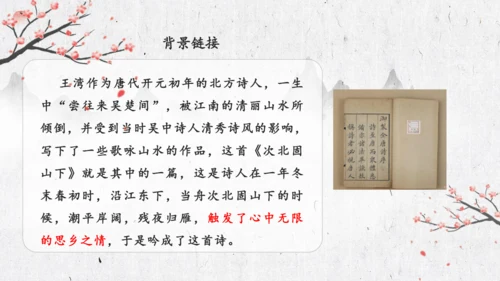 背景链接
王湾作为唐代开元初年的北方诗人，一生
中“尝往来吴楚间”，被江南的清丽山水所
倾倒，并受到当时吴中诗人清秀诗风的影响，
写下了一些歌咏山水的作品，这首《次北固
山下》就是其中的一篇，这是诗人在一年冬
末春初时，沿江东下，当舟次北固山下的时
候，潮平岸阔，残夜归雁，触发了心中无限
的思乡之情，于是吟成了这首诗。